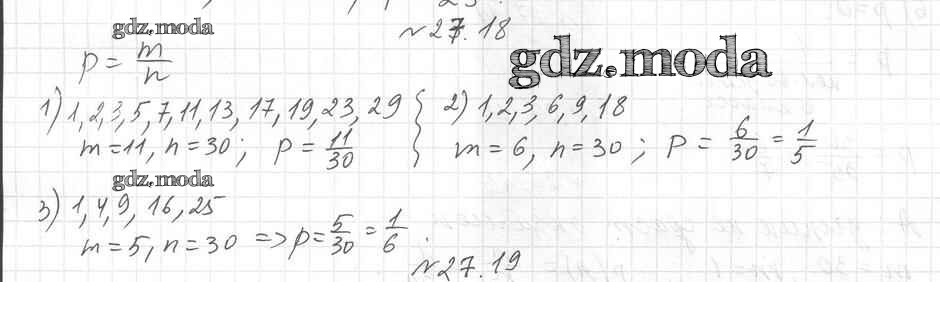 №27.18
gdz.moda
p = m/n
gdz.moda
1) 1,2,3,5,7,11,13,17,19,23,29
m=11, n=30; p=11/30
2) 1,2,3,6,9,18
m=6, n=30; p=6/30=1/5
gdz.moda
3) 1,4,9,16,25
m=5, n=30 => p=5/30=1/6.
№27.19